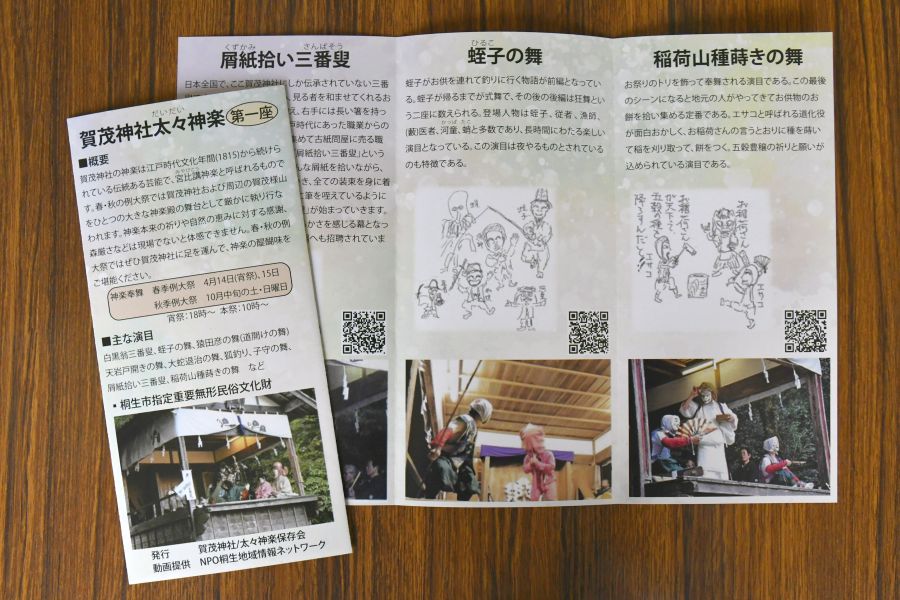 だいだい
賀茂神社太々神楽 第一座
■概要
賀茂神社の神楽は江戸時代文化年間(1815)から続けら
れている伝統ある芸能で、宮比講神楽と呼ばれるもので
す。春・秋の例大祭では賀茂神社および周辺の賀茂様山
をひとつの大きな神楽殿の舞台として厳かに執り行な
われます。神楽本来の祈りや自然の恵みに対する感謝、
森厳さなどは現場でないと体感できません。春・秋の例
大祭ではぜひ賀茂神社に足を運んで、神楽の醍醐味を
ご堪能ください。
神楽奉舞 春季例大祭 4月14日(宵祭)、15日
秋季例大祭 10月中旬の土・日曜日
宵祭:18時〜 本祭:10時〜
■主な演目
白黒翁三番叟、蛭子の舞、猿田彦の舞(道開けの舞)
天岩戸開きの舞、大蛇退治の舞、狐釣り、子守の舞、
屑紙拾い三番叟、稲荷山種蒔きの舞 など
・桐生市指定重要無形民俗文化財
発行 賀茂神社/太々神楽保存会
動画提供 NPO桐生地域情報ネットワーク
くずかみ さんばそう
屑紙拾い三番叟
日本全国で、ここ賀茂神社にしか伝承されていない三番
見る者を和ませてくれるお
え、右手には長い箸を持っ
戸時代にあった職業からの
集めて古紙問屋に売る職
「屑紙拾い三番叟」という
んな屑紙を拾いながら、
き、全ての装束を身に着
に筆を咥えているように
」が始まっていきます。
かさを感じる幕となっ
へも招聘されていま
ひるこ
蛭子の舞
蛭子がお供を連れて釣りに行く物語が前編となってい
る。蛭子が帰るまでが式舞で、その後の後編は狂舞とい
う二座に数えられる。登場人物は蛭子、従者、漁師、
(藪)医者、河童、蛸と多数であり、長時間にわたる楽しい
かっぱ たこ
演目となっている。この演目は夜やるものとされている
のも特徴である。
蛭子
稲荷山種蒔きの舞
お祭りのトリを飾って奉舞される演目である。この最後
のシーンになると地元の人がやってきてお供物のお
餅を拾い集める定番である。エサコと呼ばれる道化役
が面白おかしく、お稲荷さんの言うとおりに種を蒔い
て稲を刈り取って、餅をつく。五穀豊穣の祈りと願いが
込められている演目である。
お稲荷さん
が天下って、
五穀の種を
降さうんだとよ!!
エサコ
お稲荷さん
エサコ